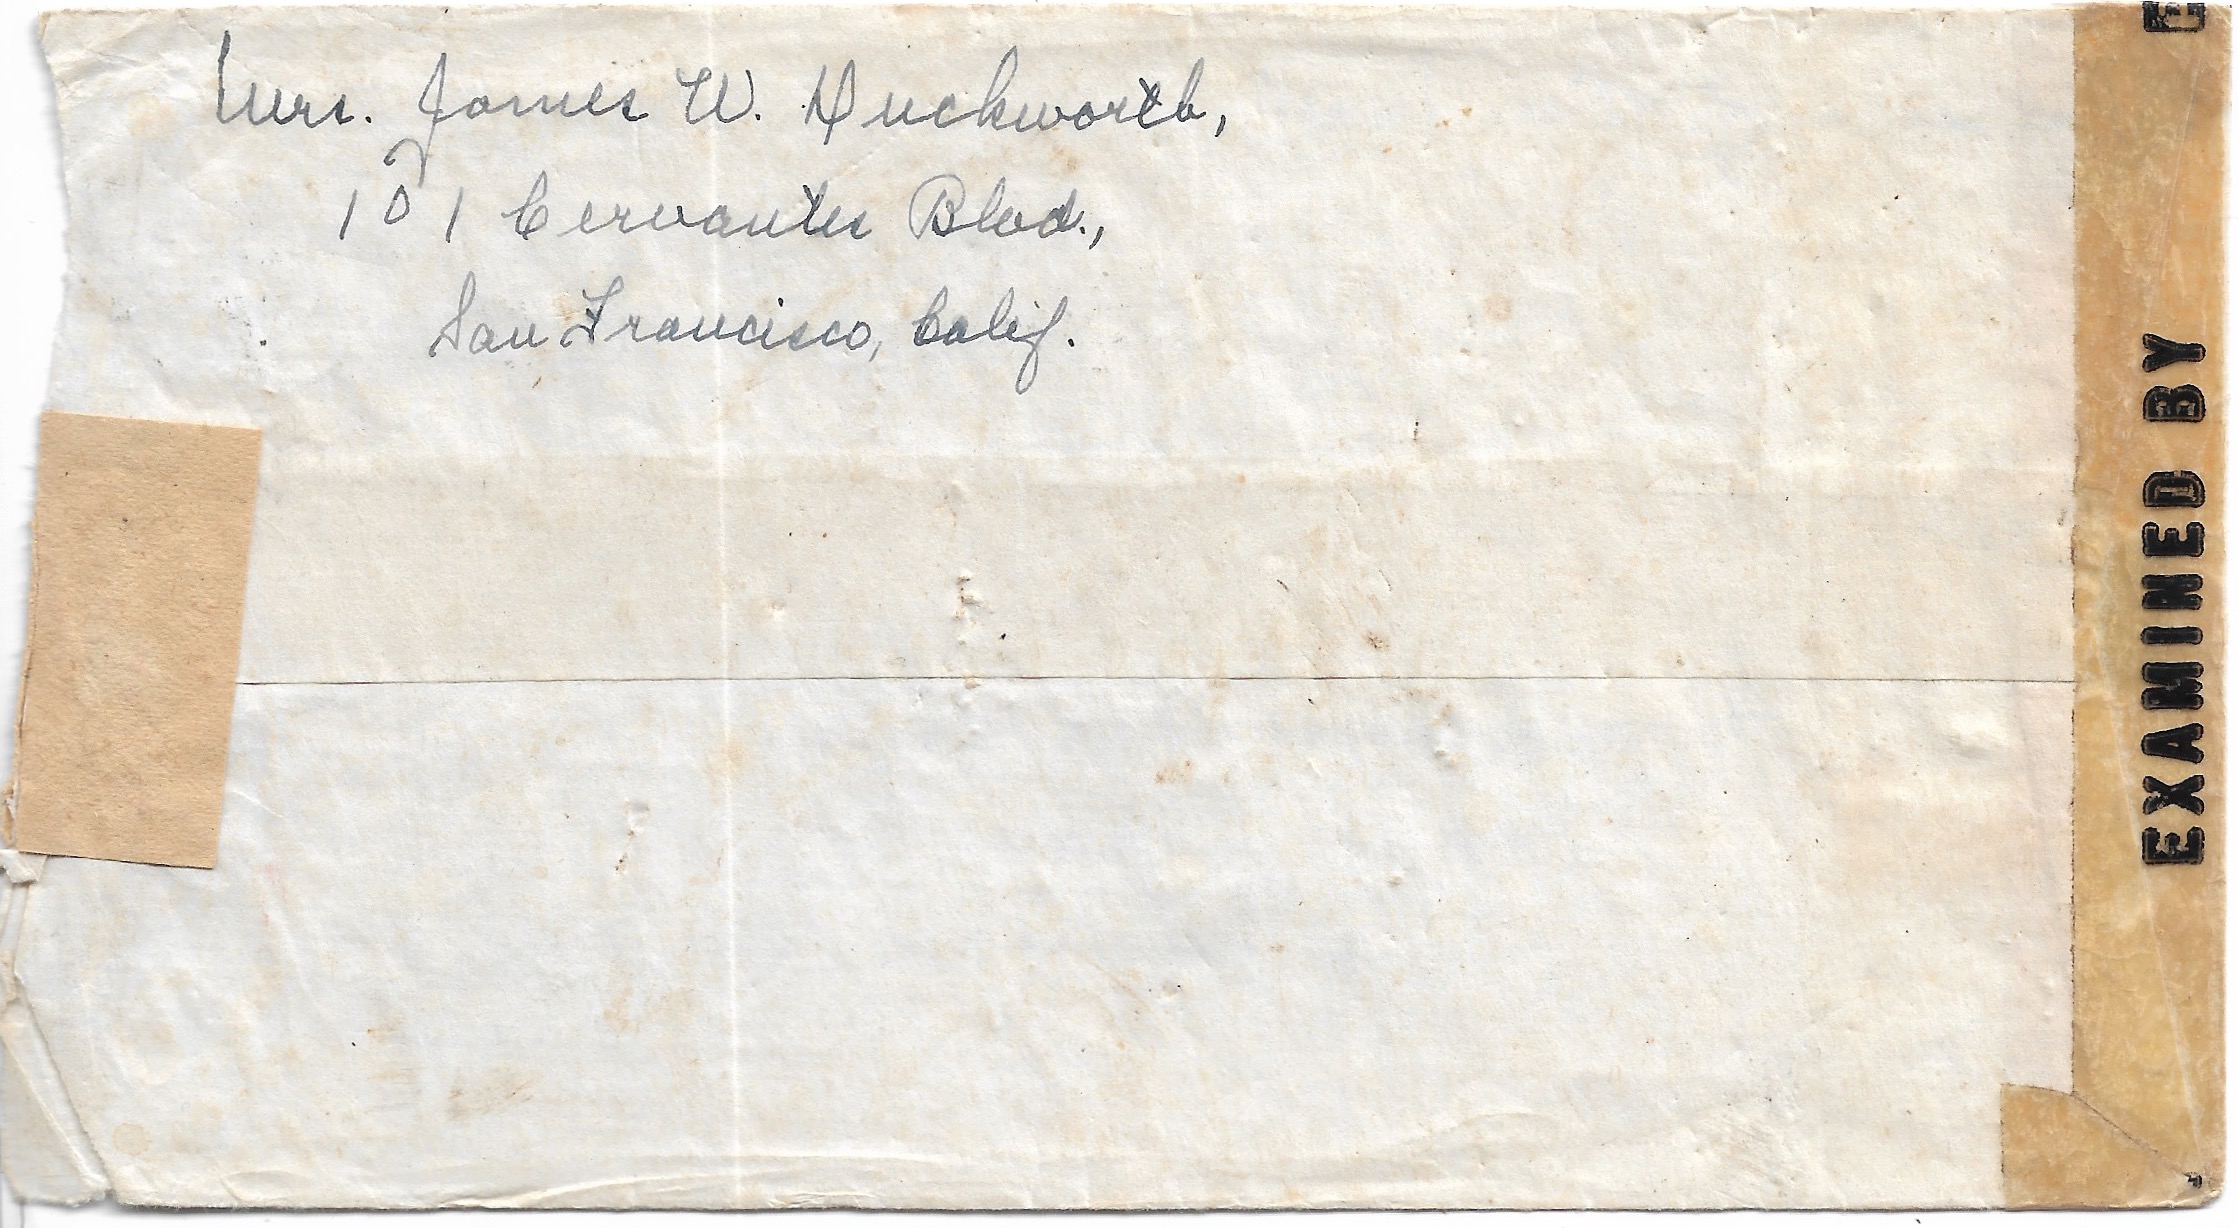 Mrs. James W. Duckworth,
101 Cervantes Blvd.,
San Francisco, Calif.
EXAMINED BY